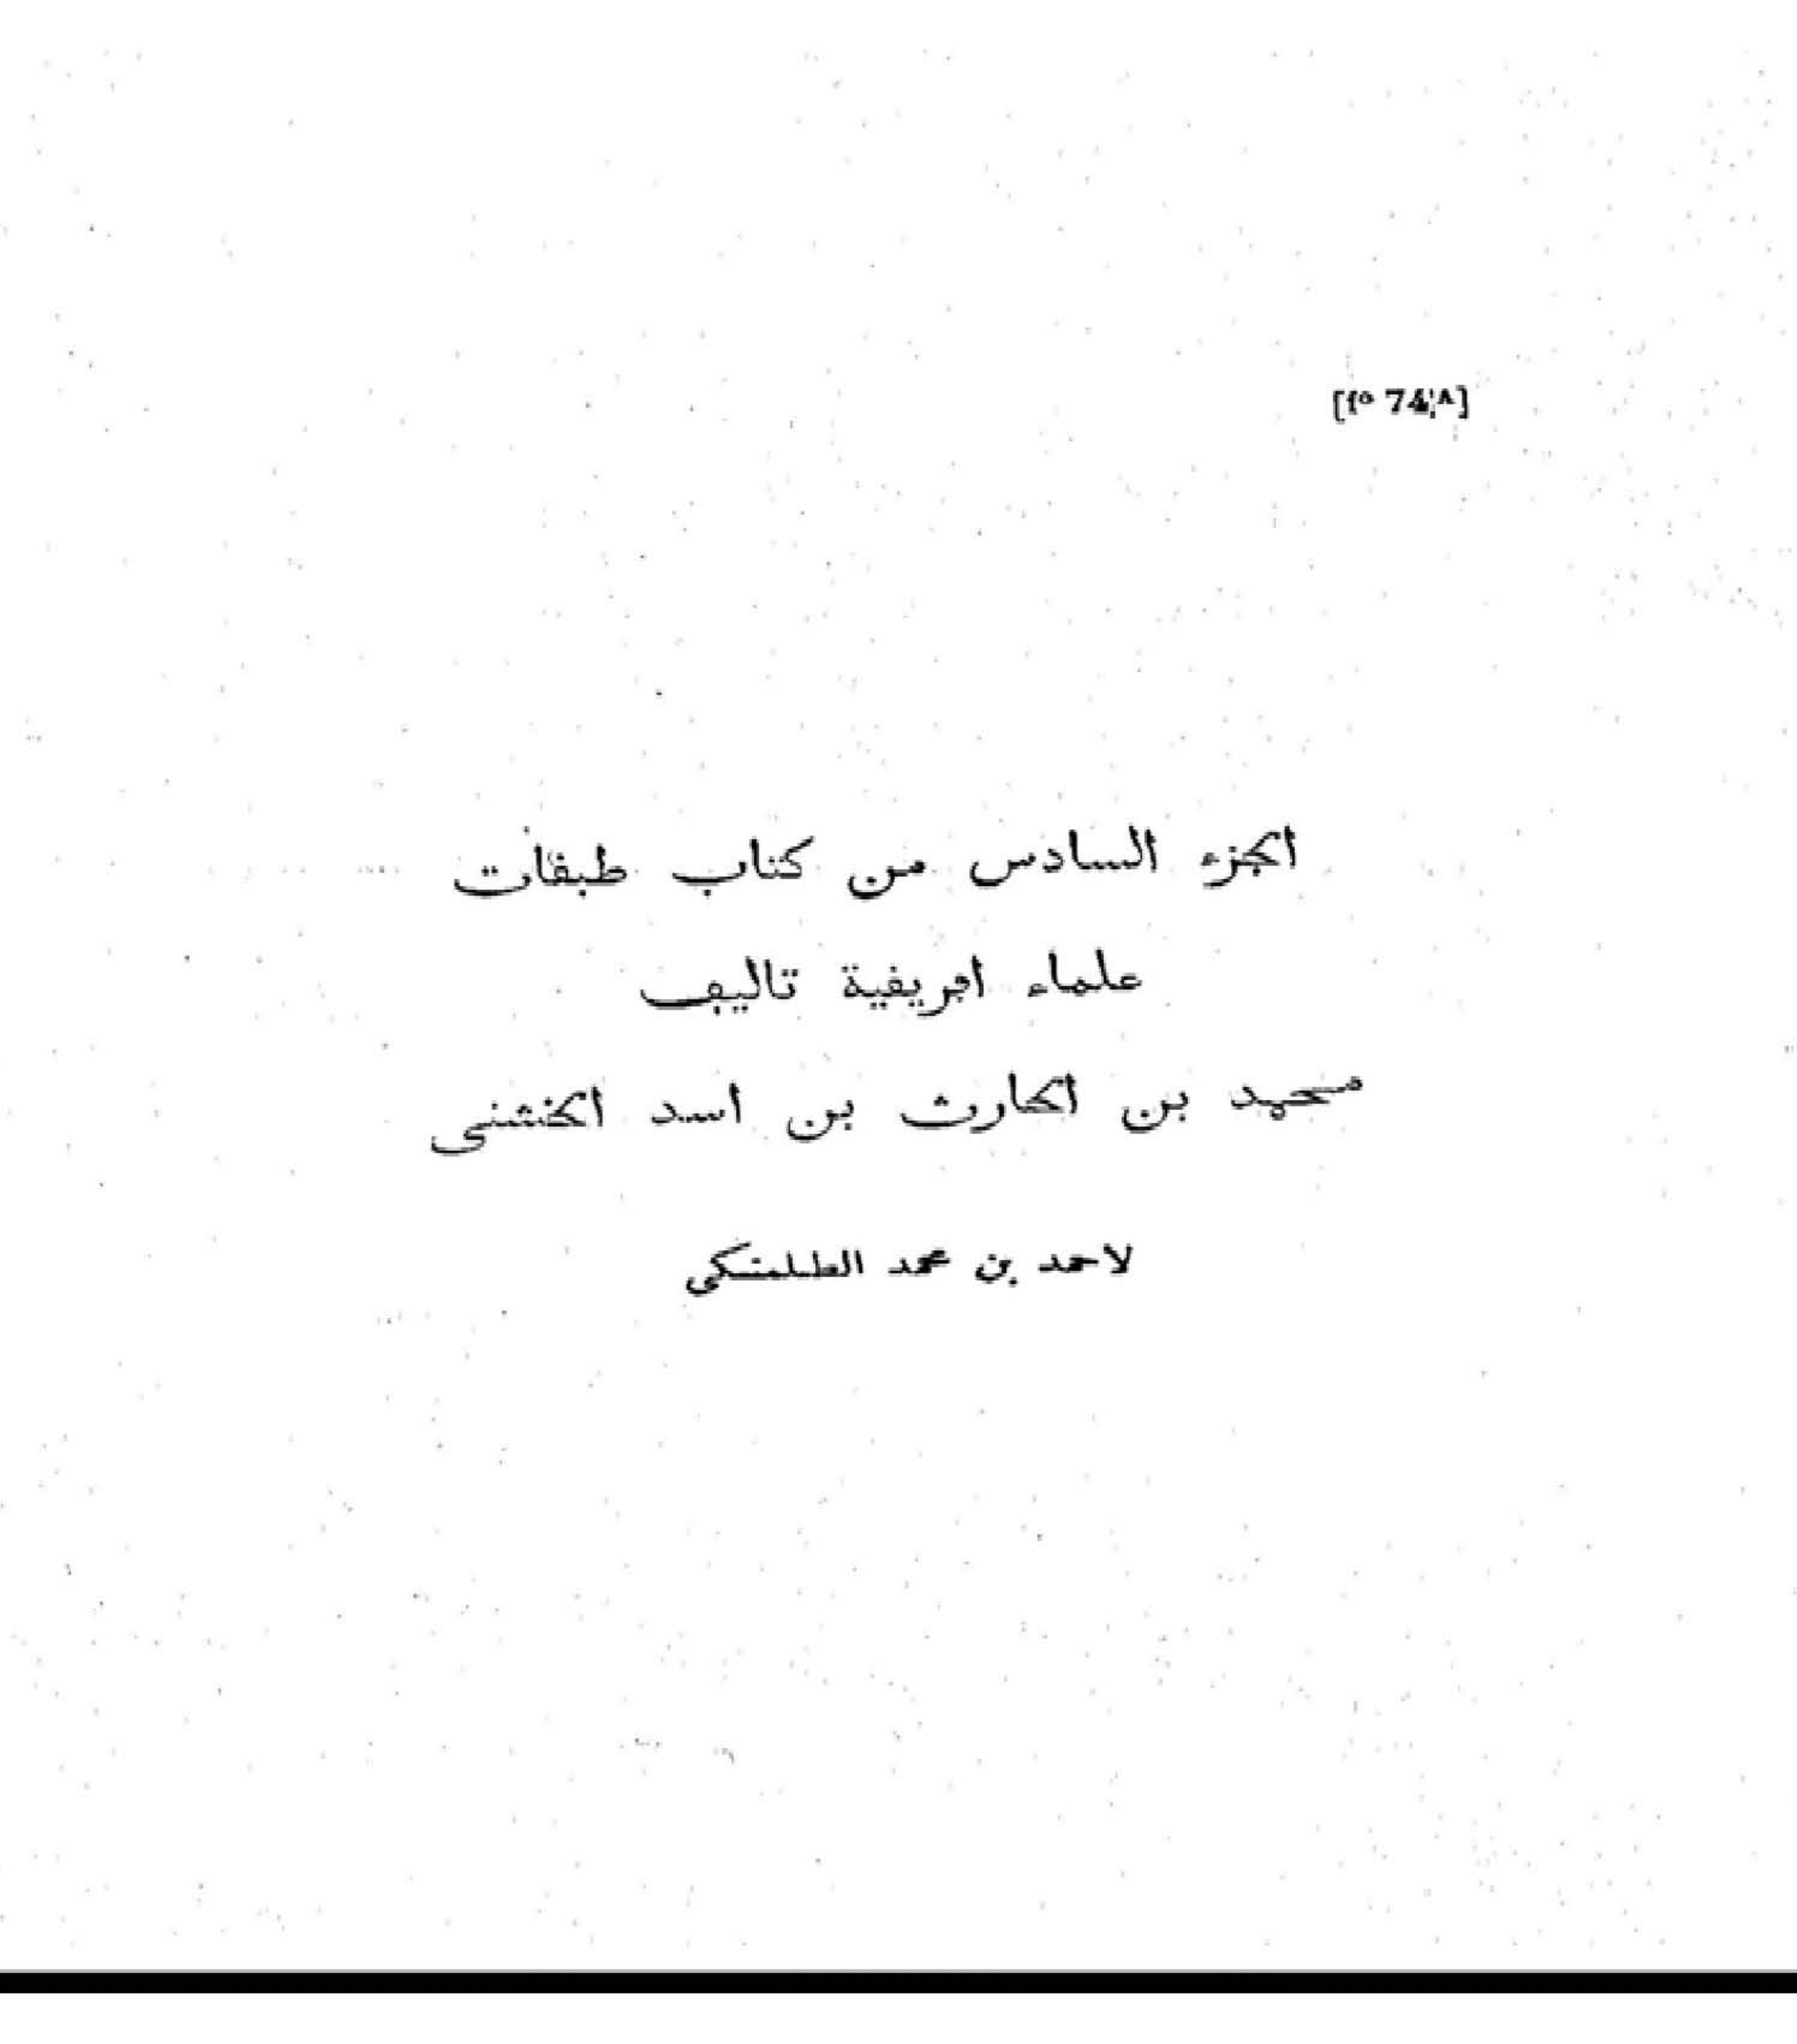 [fº 74,ᴬ]
الجزء السادس من كتاب طبقات
علماء افريقية تاليف
محمد بن الحارث بن اسد الخشنى
لاحمد بن محمد الطلمنكى